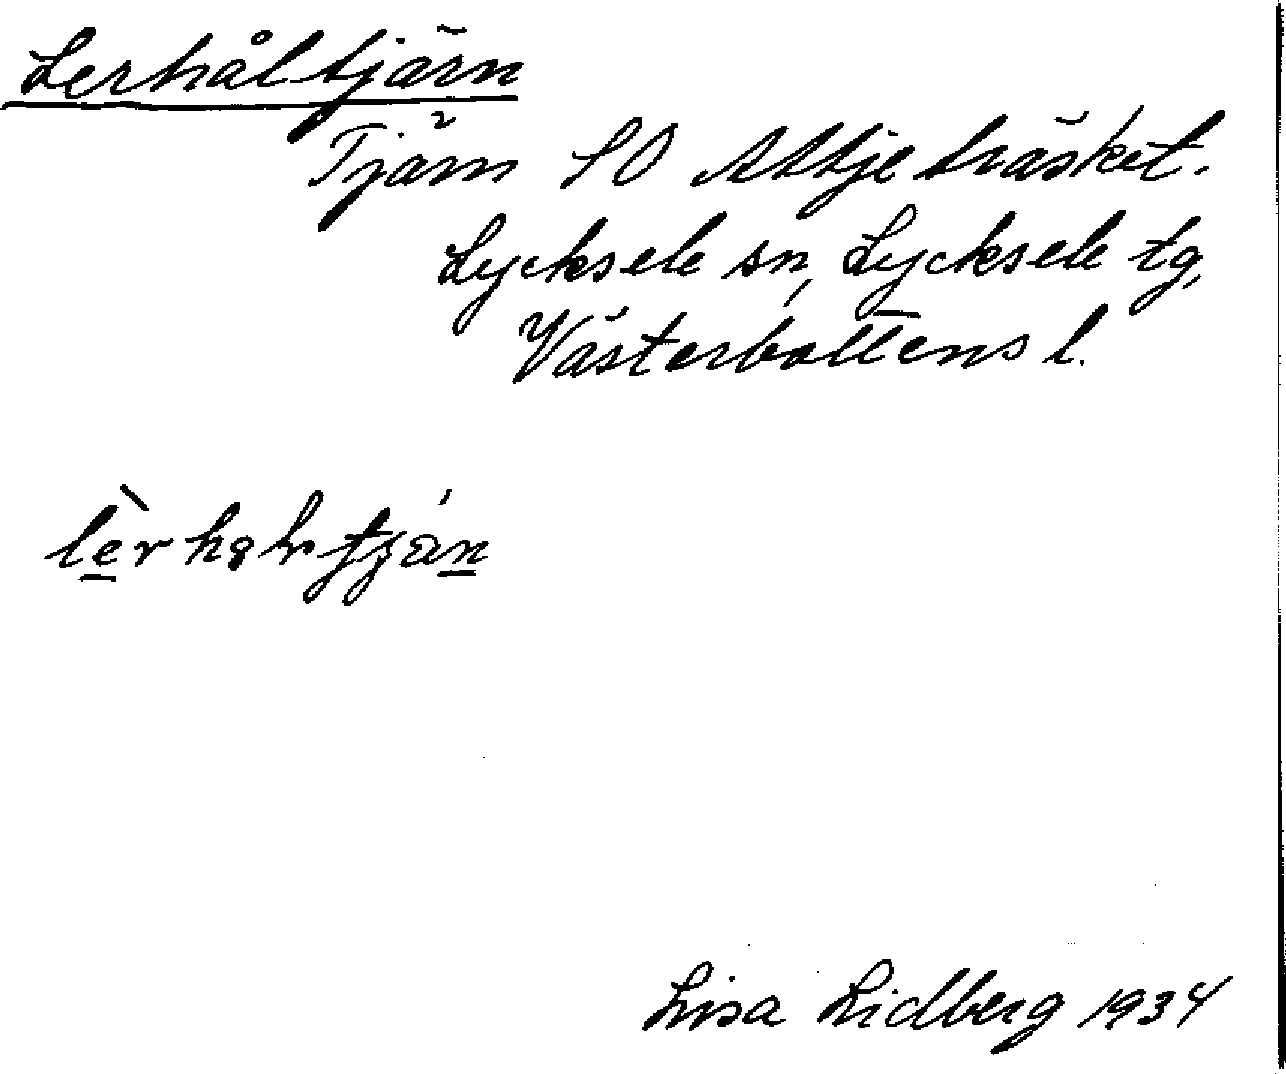 Lerhåltjärn
Tjärn SO Attjeträsket.
Lycksele sn, Lycksele tg,
Västerbottens l.
Lisa Lidberg 1934